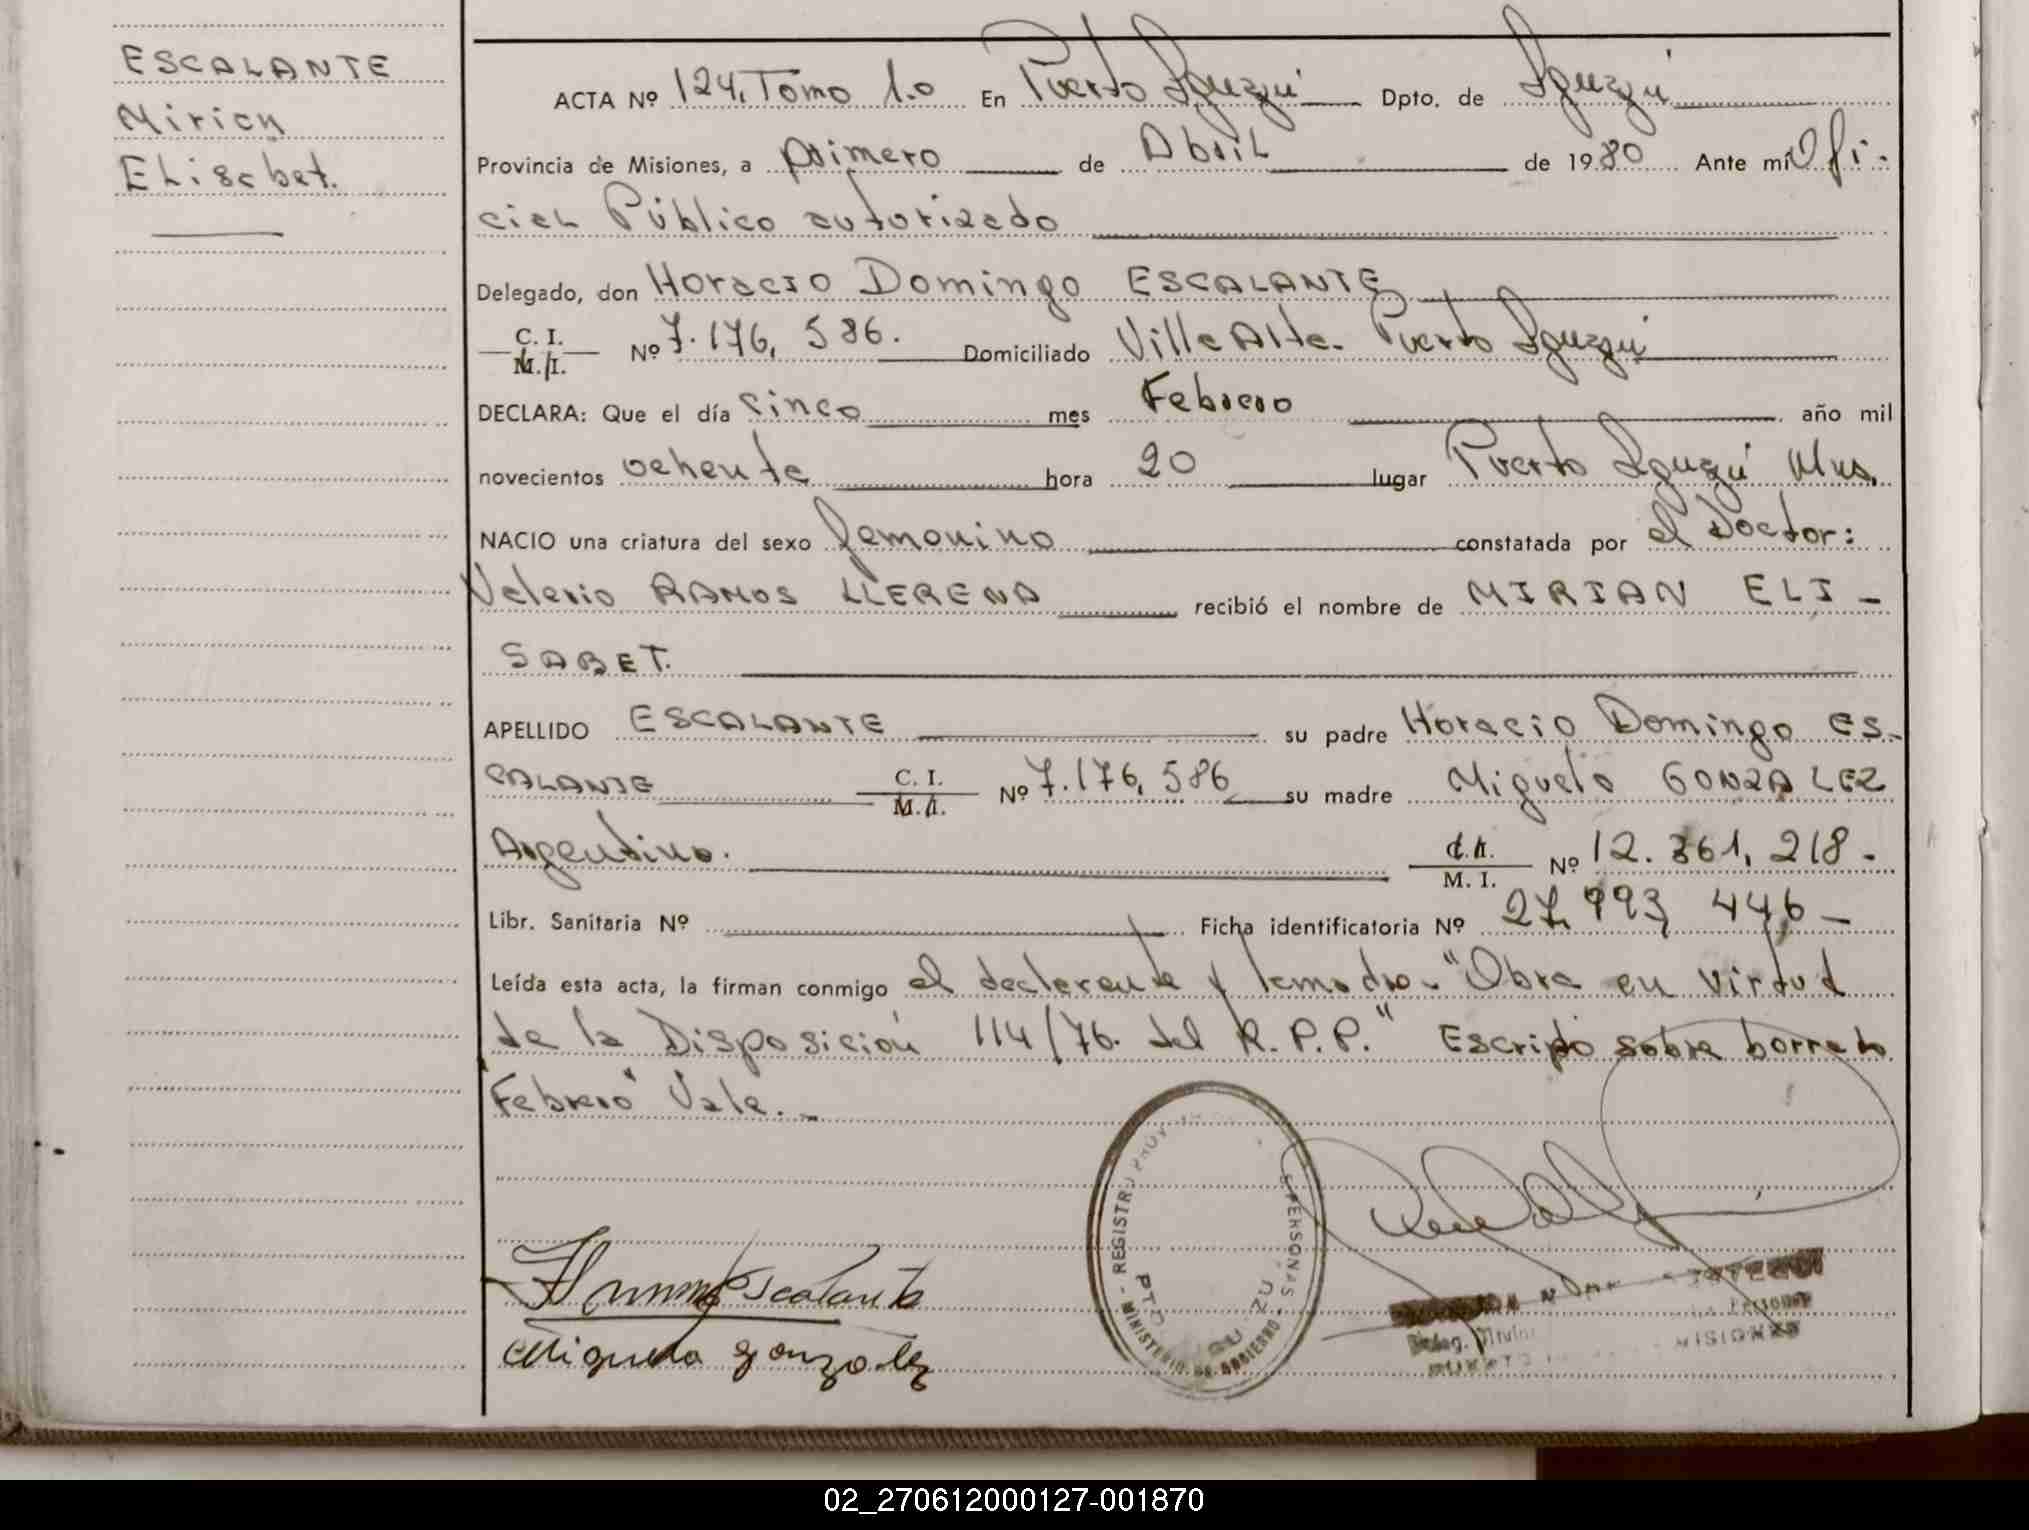 ESCALANTE
Mirian
Elisabet.
ACTA Nº 124, Tomo 1.o En Puerto Iguazú Dpto. de Iguazú
Provincia de Misiones, a primero de Abril de 1980 Ante mi Ofi-
cial Público autorizado
Delegado, don Horacio Domingo ESCALANTE
C. I.
M. I. Nº 7.176,586. Domiciliado Villa Alta. Puerto Iguazú
DECLARA: Que el día cinco mes Febrero año mil
novecientos ochenta hora 20 lugar Puerto Iguazú Mnes.
NACIO una criatura del sexo femenino constatada por el Doctor:
Valerio RAMOS LLERENA recibió el nombre de MIRIAN ELI-
SABET.
APELLIDO ESCALANTE su padre Horacio Domingo ES-
CALANTE C. I.
M. I. Nº 7.176,586 su madre Miguela GONZALEZ
Argentina. C. I.
M. I. Nº 12.361,218.-
Libr. Sanitaria Nº Ficha identificatoria Nº 27,993,446-
Leída esta acta, la firman conmigo el declarante y la madre.- "Obra en virtud
de la Disposición 114/76. del R.P.P." Escripto sobre borrado
"Febrero" Vale.-
Escalante
Miguela gonzalez
MINISTERIO DE GOBIERNO - REGISTRO PERSONAS
PTO.
MISIONES
02_270612000127-001870